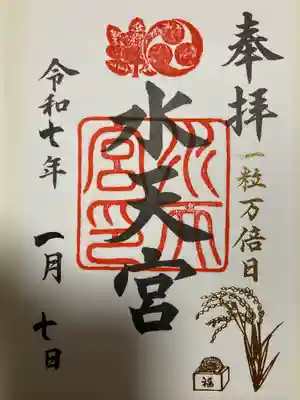 奉拝
一粒万倍日
水天宮
水天宮印
令和七年
一月 七日
福